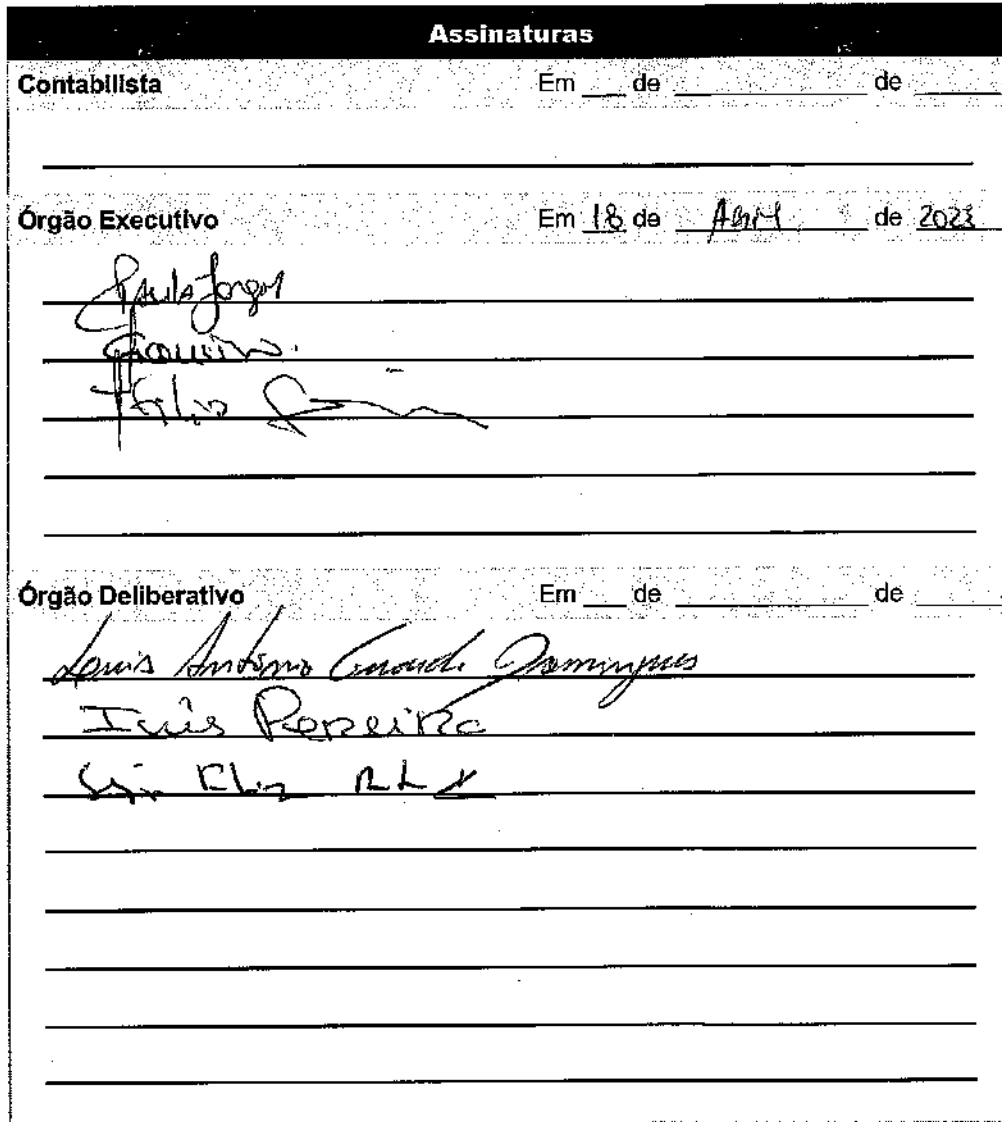 Assinaturas
Contabilista Em ___ de ___ de ___
Órgão Executivo Em 18 de Abril de 2023
Paula Jorge
Órgão Deliberativo Em ___ de ___ de ___
Luis António Domingues
Inês Pereira